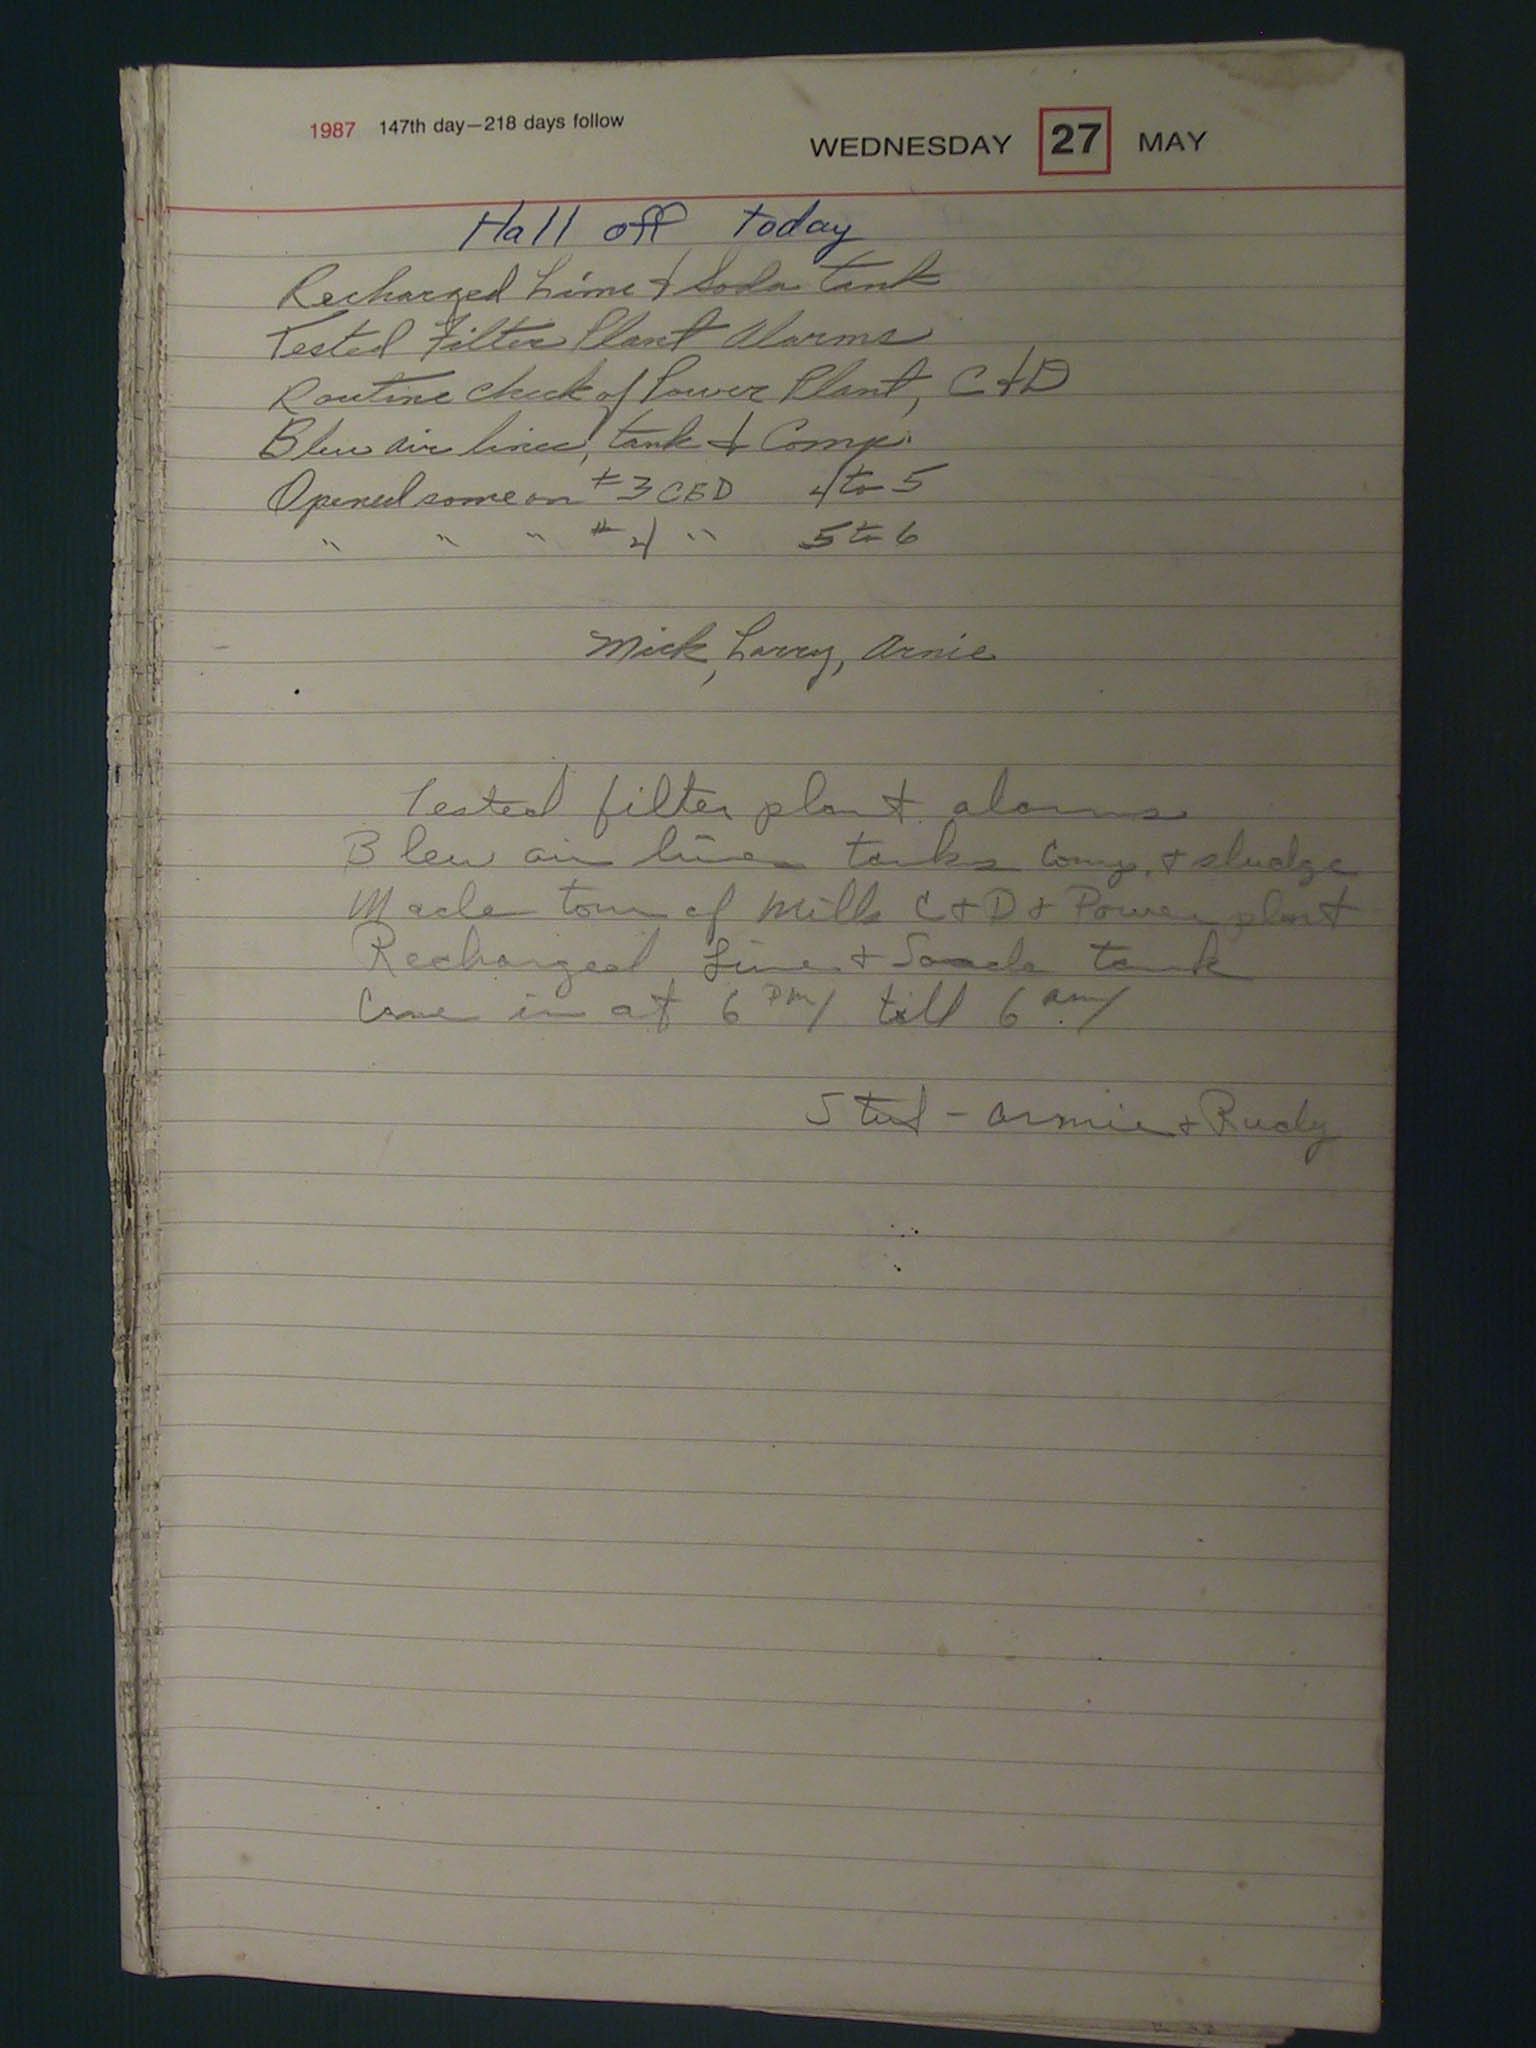 1987 147th day—218 days follow
WEDNESDAY 27 MAY
Hall off today
Recharged Lime & Soda tank
Tested Filter Plant Alarms
Routine check of Power Plant, C & D
Blew air lines, tank & Comp.
Opened some on #3 CED 4 to 5
" " " #4 " 5 to 6
Mick, Larry, Arnie
Tested filter plant alarms
Blew air lines tanks Comp. & sludge
Made tour of Mills C & D & Power plant
Recharged Lime & Soada tank
Came in at 6 PM/ till 6 am/
Stut - Arnie & Rudy